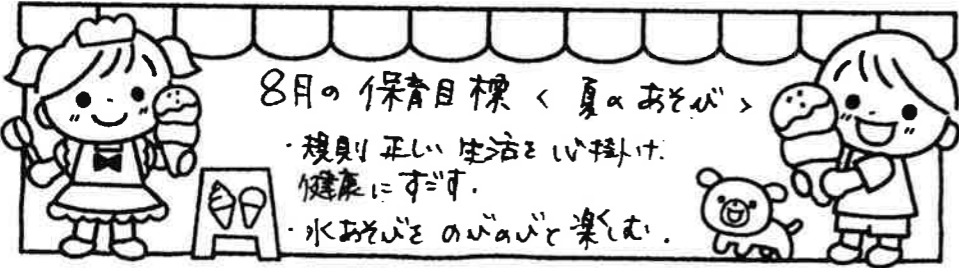 8月の保育目標〈夏のあそび〉
・規則正しい生活を心掛け.
健康にすごす.
・水あそびをのびのびと楽しむ.